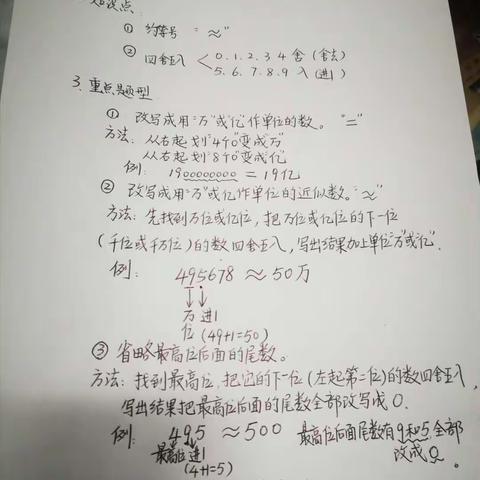 知识点
① 约等号 "≈"
② 四舍五入 < 0.1.2.3 4 舍 (舍去)
5.6.7.8.9 入 (进1)
3. 重点题型
① 改写成用"万"或"亿"作单位的数。 "="
方法: 从右起划"4个0"变成"万"
从右起划"8个0"变成"亿"
例: 1900000000 = 19亿
② 改写成用"万"或"亿"作单位的近似数。"≈"
方法: 先找到万位或亿位, 把万位或亿位的下一位
(千位或千万位) 的数四舍五入, 写出结果加上单位"万"或"亿".
例: 495678 ≈ 50万
万 进1
位 (49+1=50)
③ 省略最高位后面的尾数。
方法: 找到最高位, 把它的下一位 (左起第二位) 的数四舍五入,
写出结果把最高位后面的尾数全部改写成 0.
例: 495 ≈ 500 最高位后面尾数有9和5, 全部
最高位 进1 改成 0 。
(4+1=5)